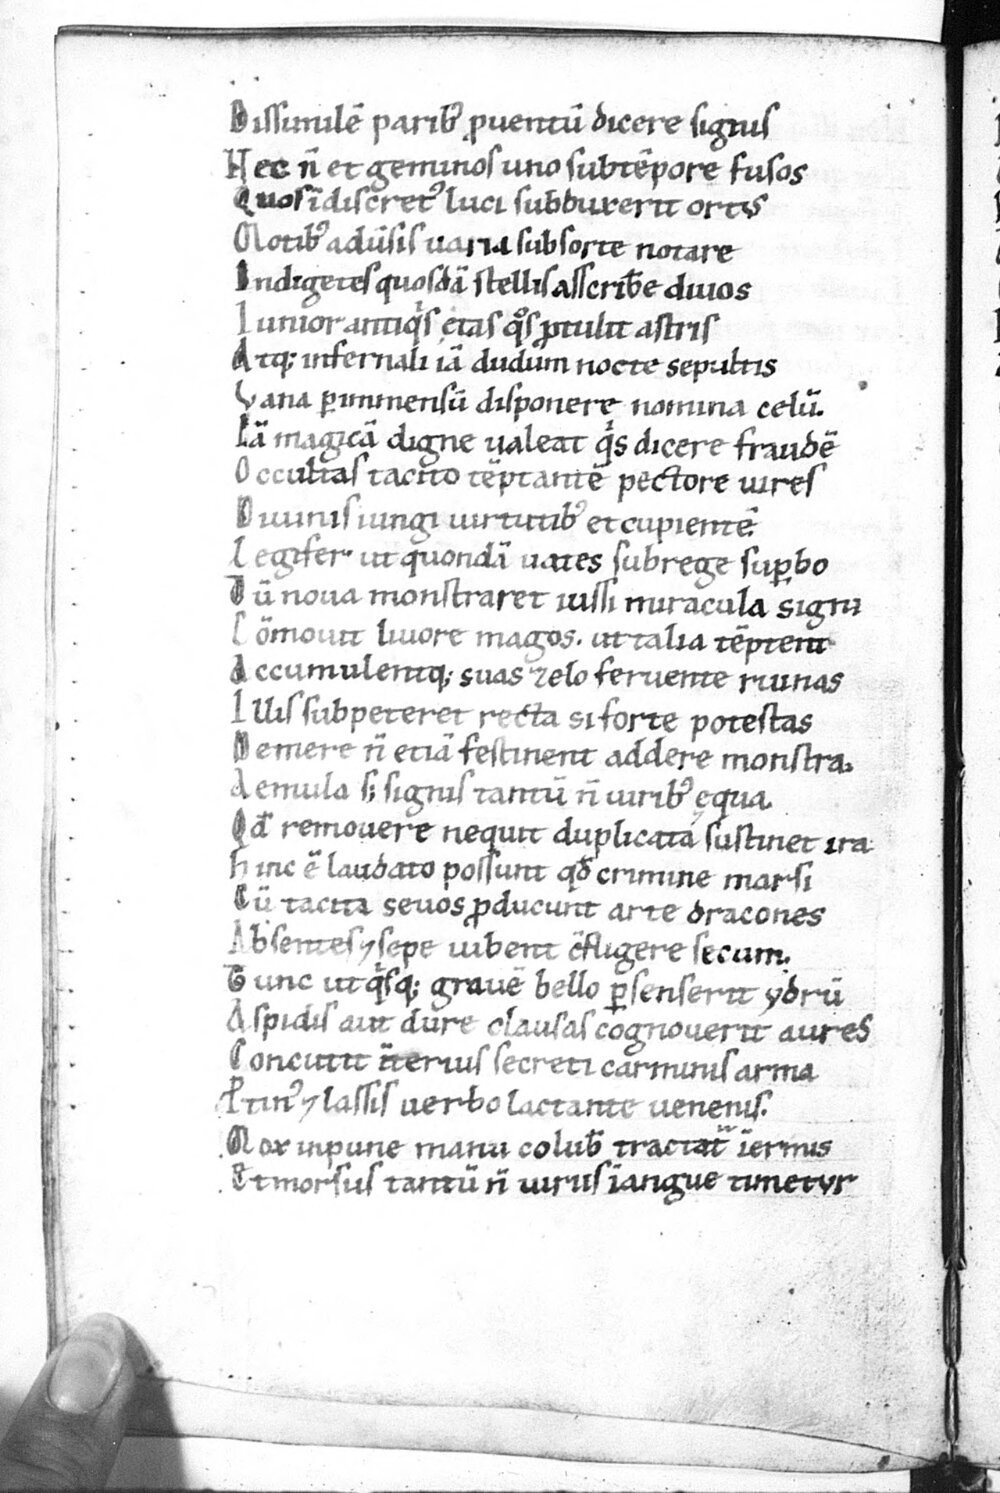 Dissimilē parib᷒ ꝓuentū dicere signis
Hec n̄ et geminos uno sub tēpore fusos
Quos īdiscret᷒ luci subduxerit ortus
Motib᷒ aduſis uaria sub sorte notare
Indigetes quosdā stellis asscribe diuos
Iunior antiqͥs ętas qͦs ꝓtulit astris
Atq; infernali iā dudum nocte sepultis
Vana ꝑ immensū disponere nomina celū.
Iā magicā digne ualeat qͥs dicere fraudē
Occultas tacito tēptantē pectore uires
Diuinis iungi uirtutib᷒ et cupientē.
Legifer ut quondā uates sub rege suꝑbo
Dū noua monstraret iussi miracula signi
Cōmouit liuore magos. ut talia tēptent
Accumulentq; suas zelo feruente ruinas
Illis subpeteret recta si forte potestas
Demere n̄ etiā festinent addere monstra.
Aemula s; signis tantū n̄ uirib᷒ ęqua.
Qd̄ remouere nequit duplicata sustinet ira
Hinc ē laudato possunt qd̄ crimine marsi
Cū tacita seuos ꝓducunt arte dracones
Absentes ⁊ sepe iubent cōfligere secum.
Tunc ut qͥsq; grauē bello ꝑsenserit ydrū
Aspidis aut dure clausas cognouerit aures
Concutit īterius secreti carminis arma
Ptin᷒ ⁊ lassis uerbo lactante uenenis.
Mox inpune manu colub̄ tractat᷑ īermis
Et morsus tantū n̄ uirus ī angue timetur